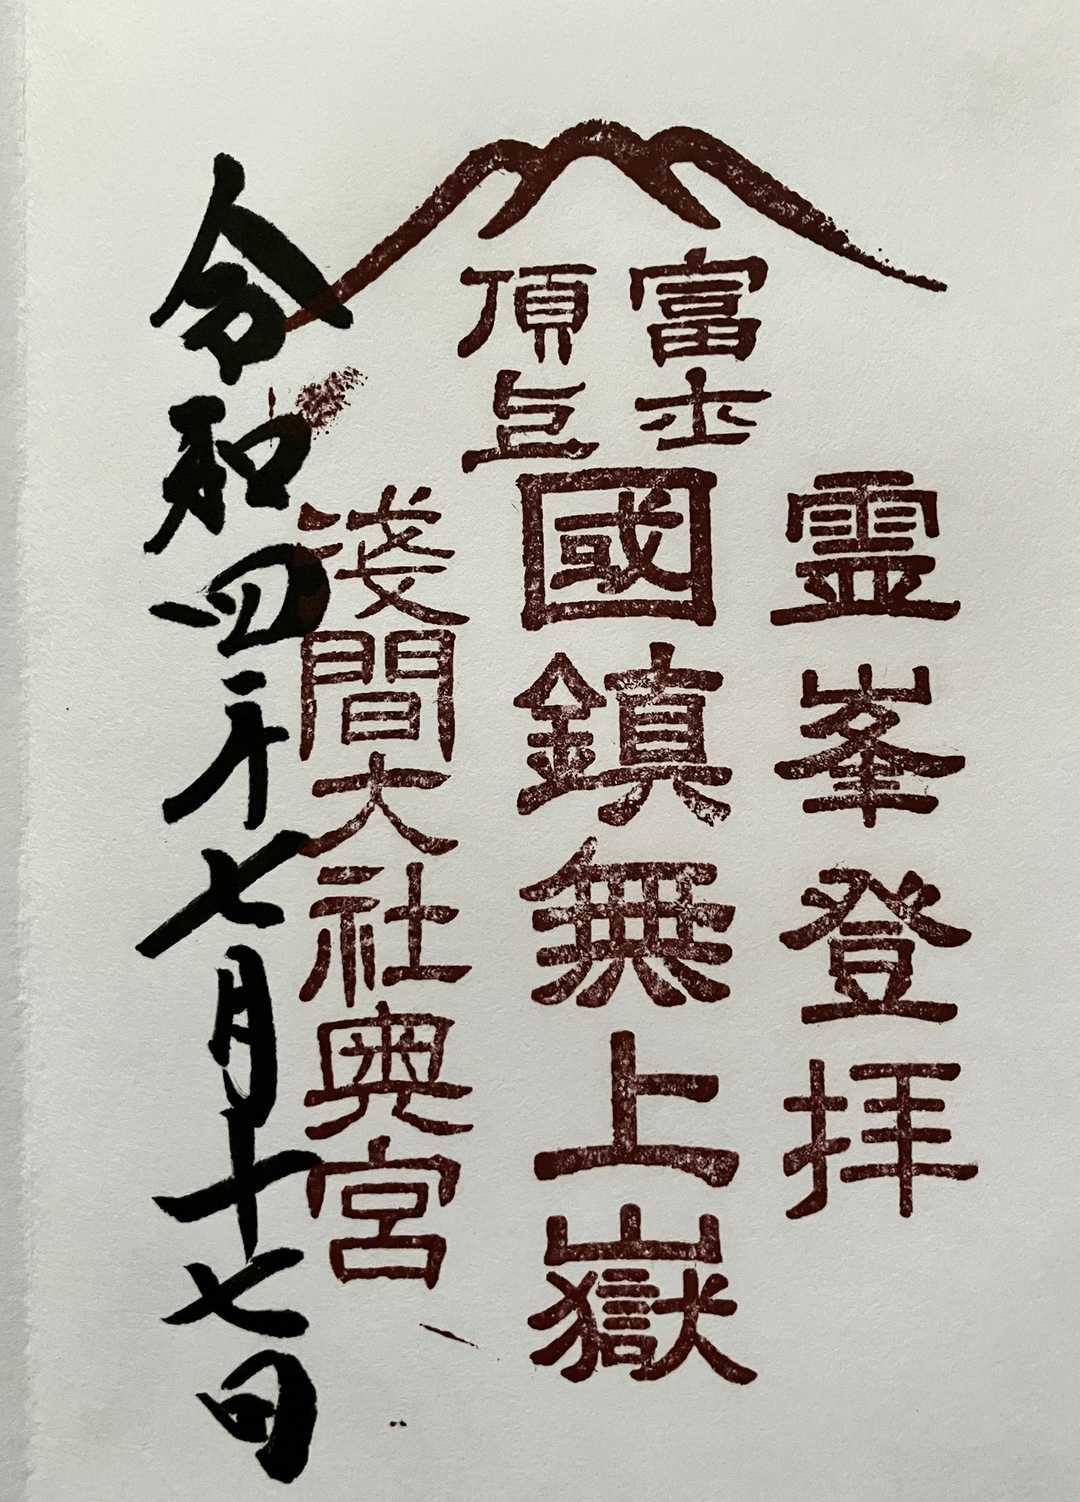 富士
頂上
霊峯登拝
國鎮無上嶽
淺間大社奥宮
令和四年七月十七日